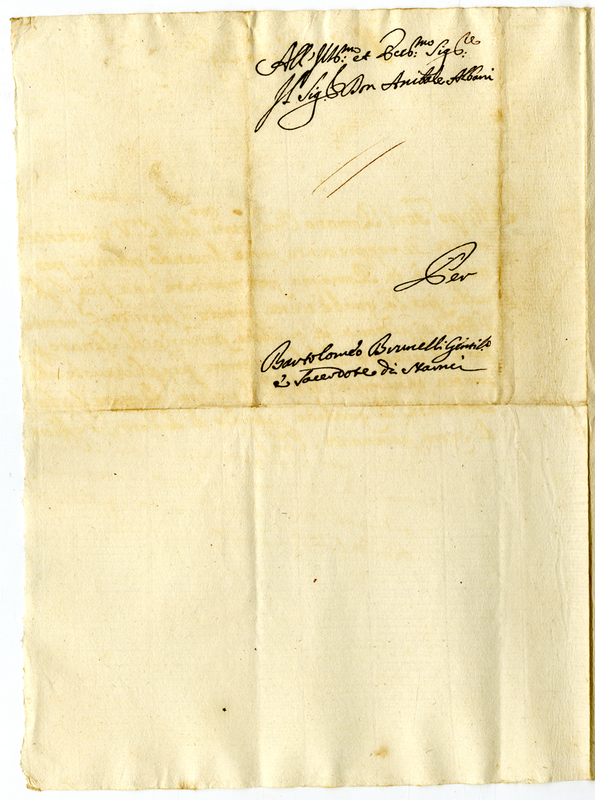 All' Ill:mo et Ecc:mo Sig:re
Il Sig:r Don Anibale Albani
Per
Bartolomeo Brunelli Gentil:o
è Sacerdote di Narni